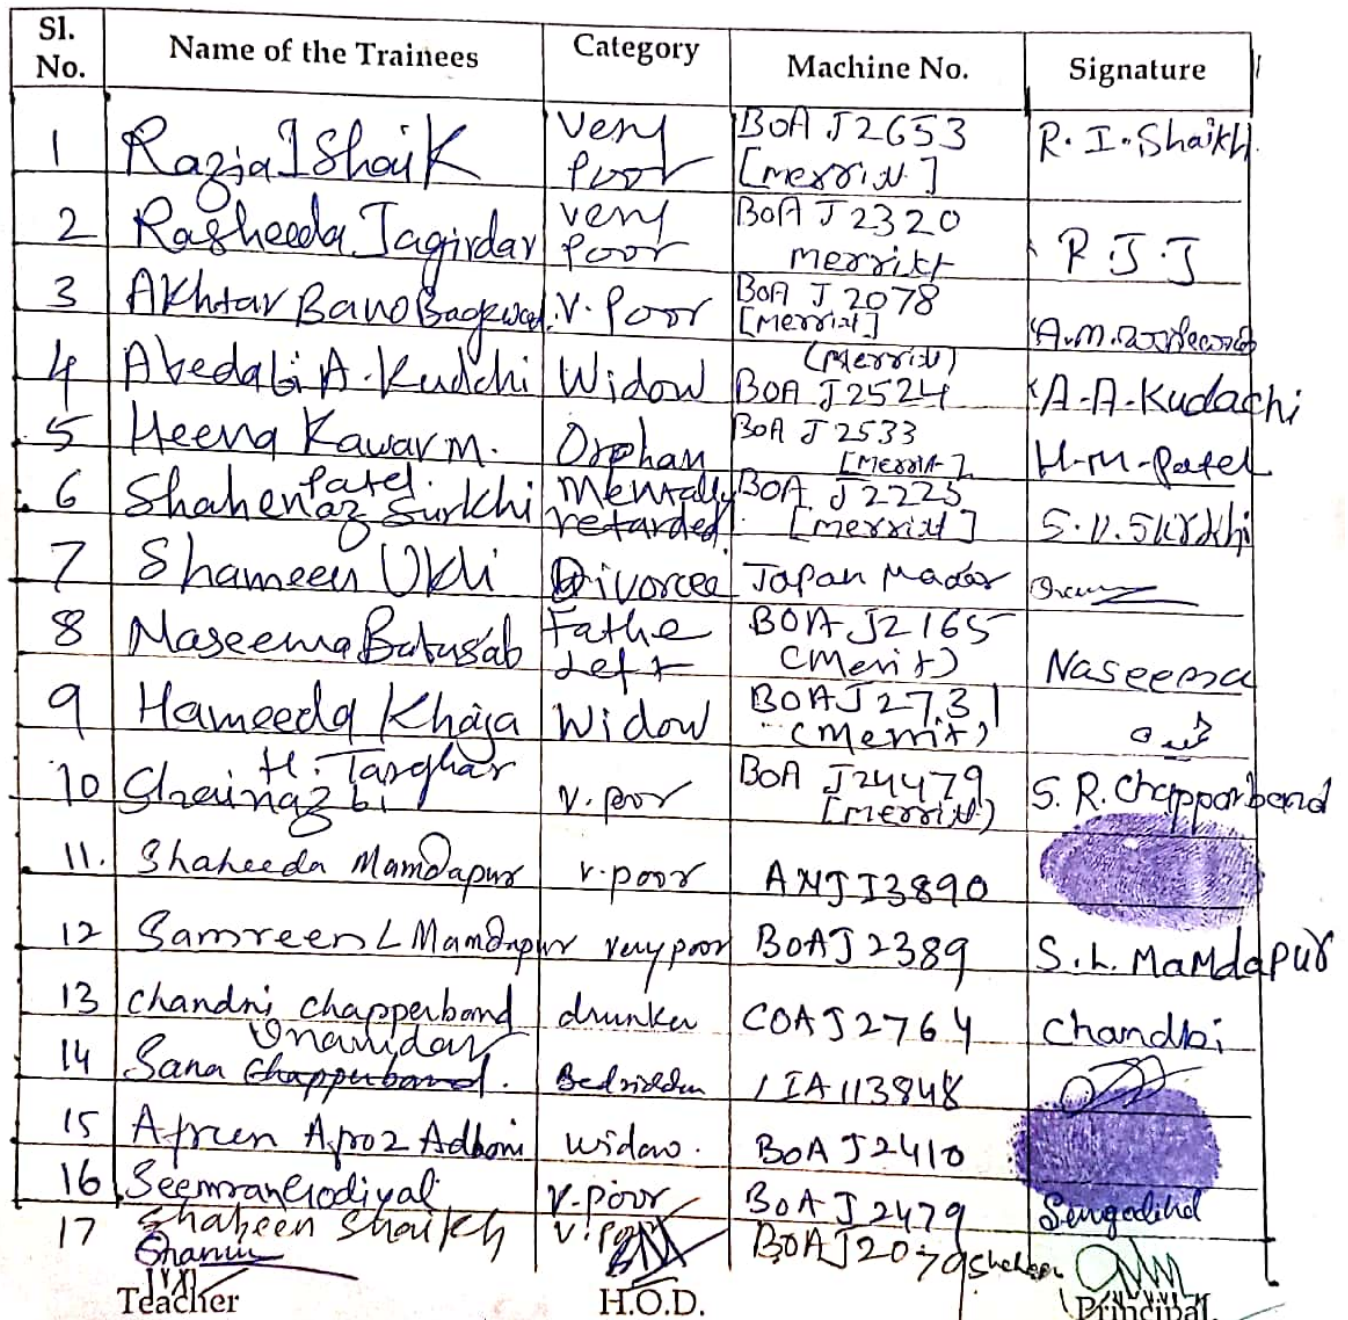 Sl. No. Name of the Trainees Category Machine No. Signature
1 Razia I Shaik Very Poor BOA J2653 [Merrit] R. I. Shaikh
2 Rasheeda Jagirdar Very Poor BOA J2320 Merritt R J. J
3 Akhtar Bano V. Poor BOA J 2078 [Merrit] A.M.
4 Abedabi A. Kudchi Widow (Merrit) BOA J2524 A-A-Kudachi
5 Heena Kawar M. Patel. Orphan BOA J 2533 [Merrit] H-M-Patel
6 Shahenaz Surkhi Mentally retarded. BOA J2225 [Merrit] S.V.Surkhi
7 Shameem Ukli Divorcee Japan
8 Naseema Babusab Fathe Left BOA J2165 (Merit) Naseema
9 Hameeda Khaja H. Tasghar Widow BOA J2731 (Merrit)
10 Shainaz bi V. poor BOA J24479 [Merrit) S. R. Chapparband
11. Shaheeda Mamdapur V. poor ANJ J3890
12 Samreen L Mamdapur Very poor BOAJ 2389 S. L. MaMdapur
13 Chandni Chapperband drunker COAJ 2764 Chandbi
14 Sana Unamidar Chapperband. Bedridden IIA113848
15 Afreen Afroz Adhoni Widow. BOA J2410
16 Seemran Godiyal V-poor BOA J 2479
17 Shaheen Shaikh V. Poor BOAJ2079 Shaheen
Teacher H.O.D. Principal.